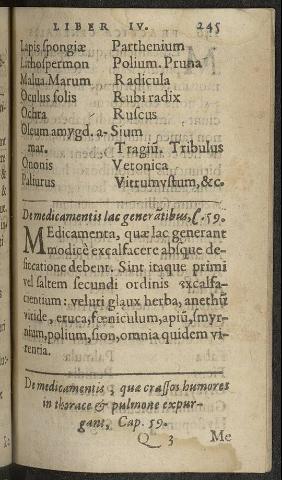 LIBER IV. 245
Lapis spongiæ Parthenium
Lithospermon Polium. Pruna
Malua. Marum Radicula
Oculus solis Rubi radix
Ochra Ruscus
Oleum amygd. a- Sium
mar. Tragiū. Tribulus
Ononis Vetonica
Paliurus Vitrum ustum, &c.
De medicamentis lac generātibus, C. 59.
MEdicamenta, quæ lac generant
modicè excalfacere absque de-
siccatione debent. Sint itaque primi
vel saltem secundi ordinis excalfa-
cientium: veluti glaux herba, anethū
viride, eruca, fœniculum, apiū, smyr-
nium, polium, sion, omnia quidem vi-
rentia.
De medicamentis, quæ crassos humores
in thorace & pulmone expur-
gant, Cap. 59.
Q 3 Me